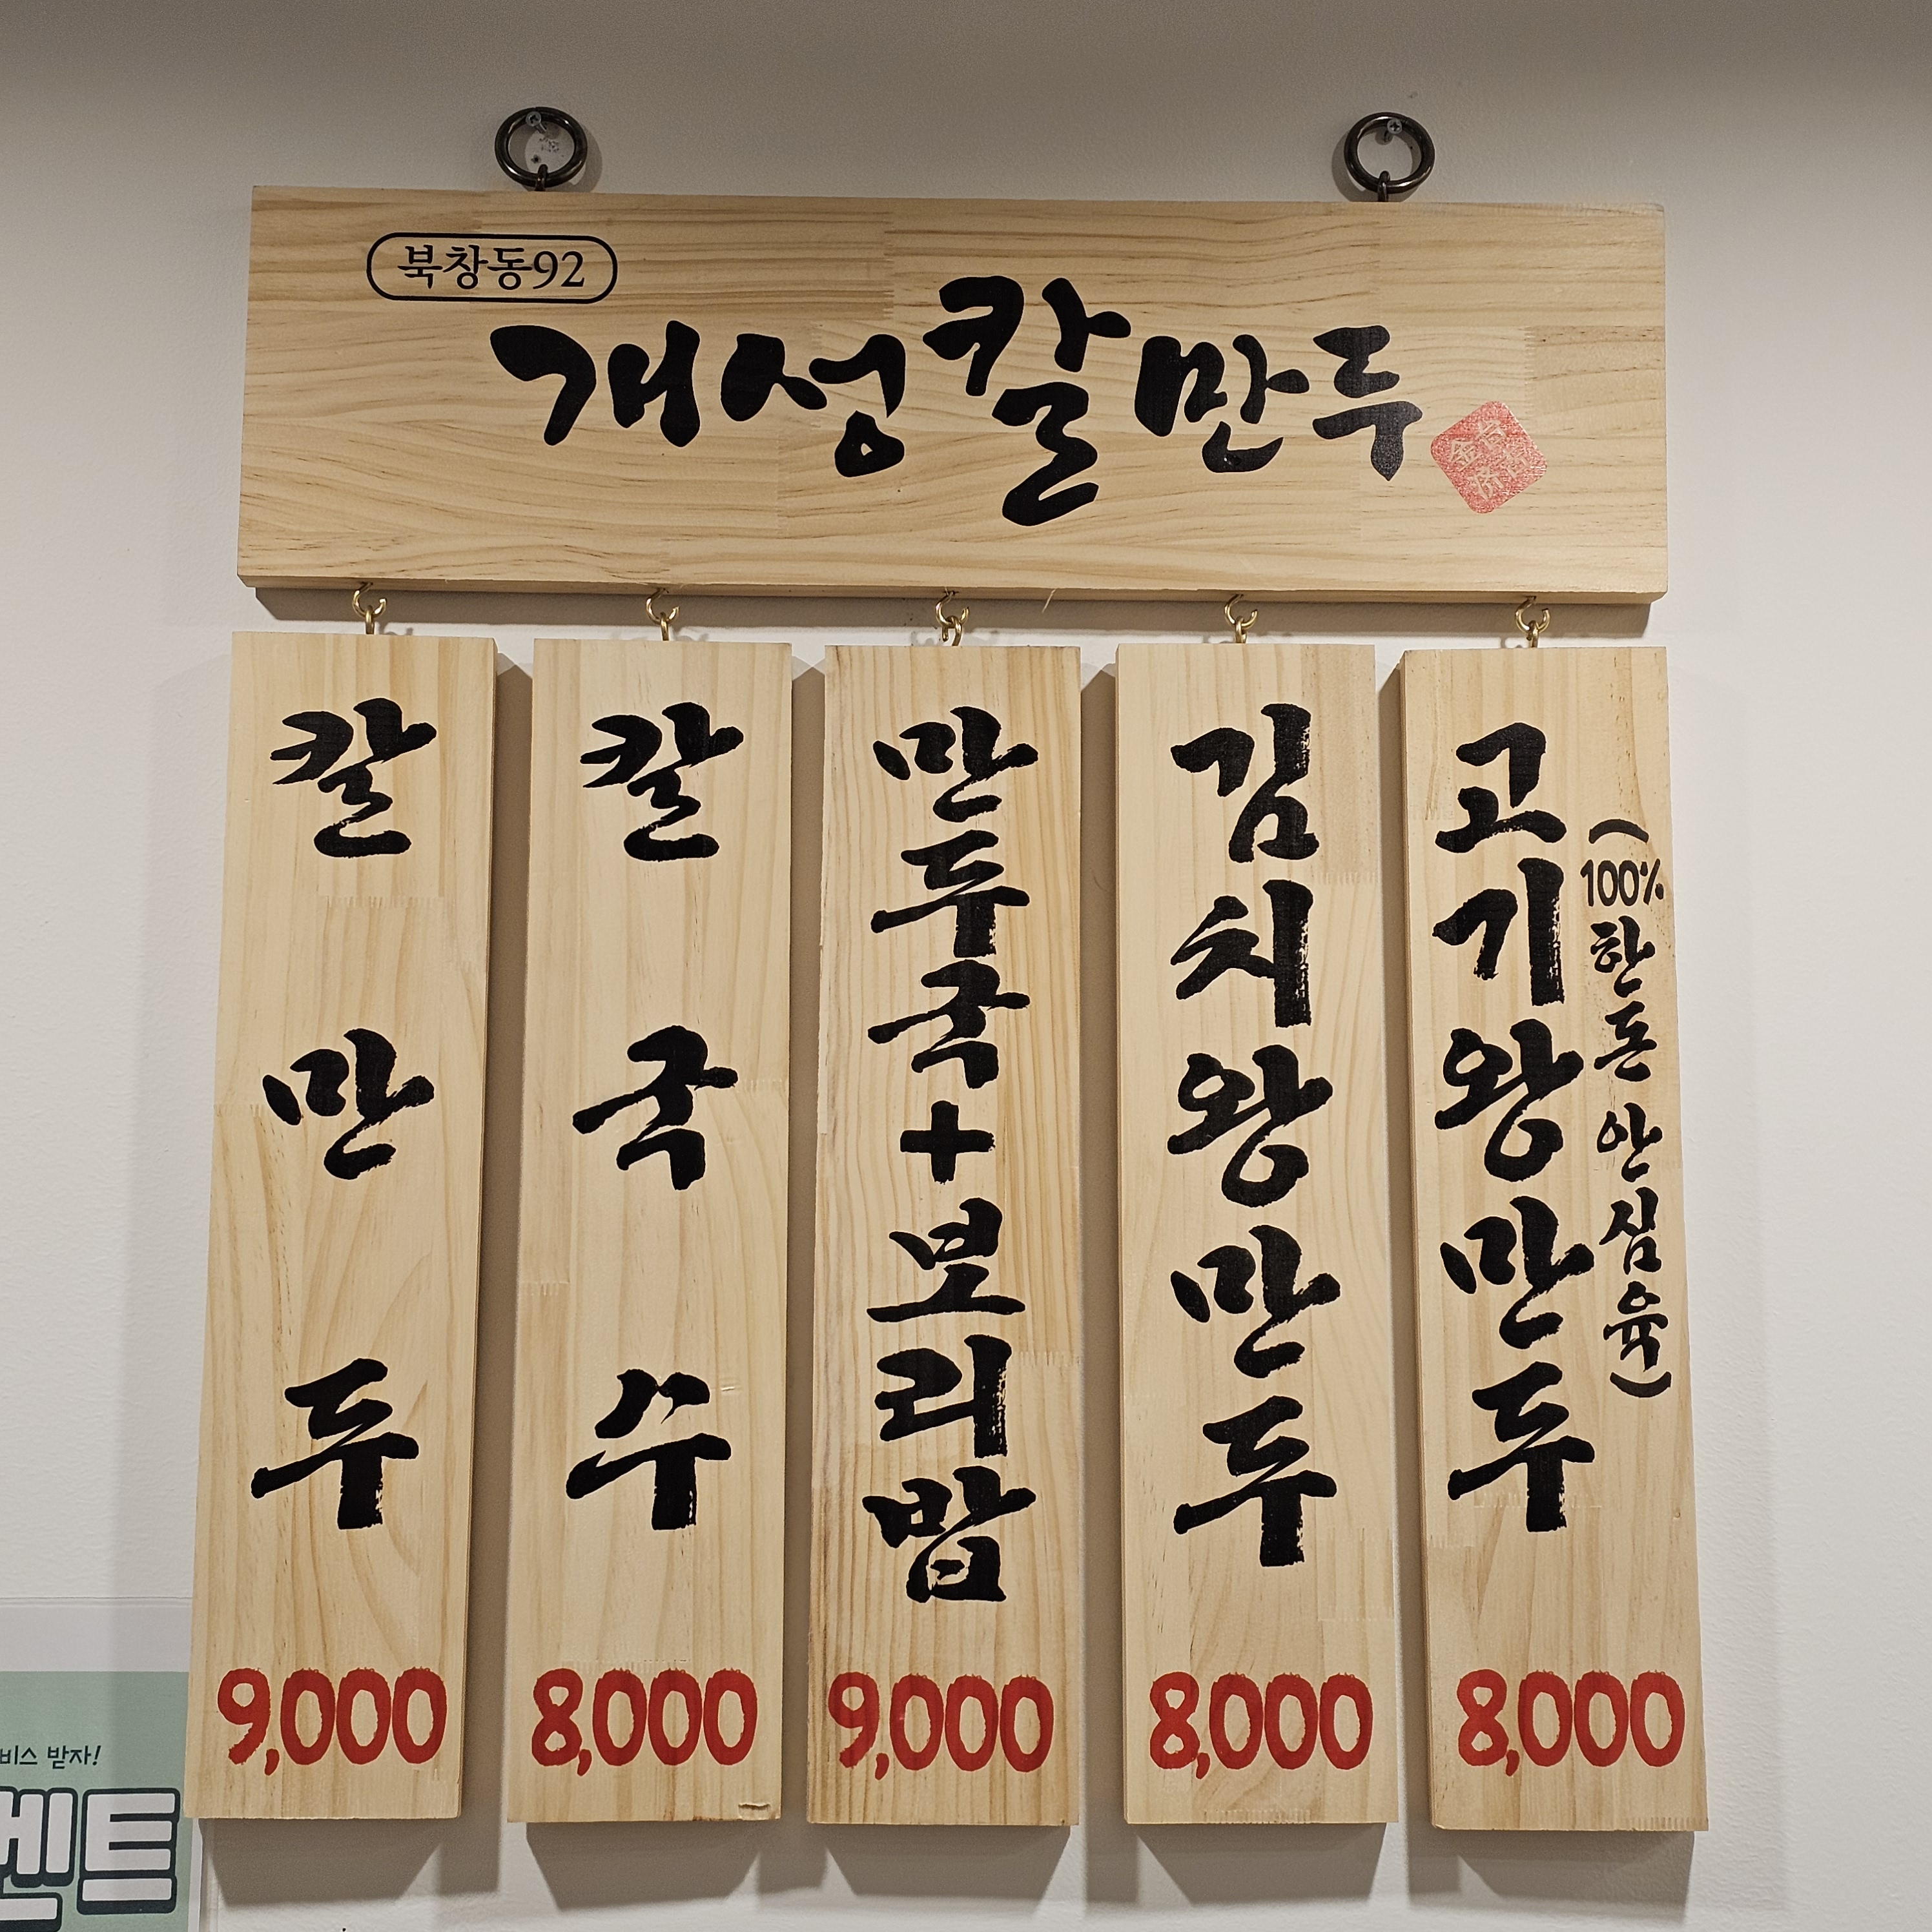 북창동92
개성칼만두
칼만두
9,000
칼국수
8,000
만두국+보리밥
9,000
김치왕만두
8,000
고기왕만두
(100% 한돈 안심육)
8,000
비스 받자!
벤트